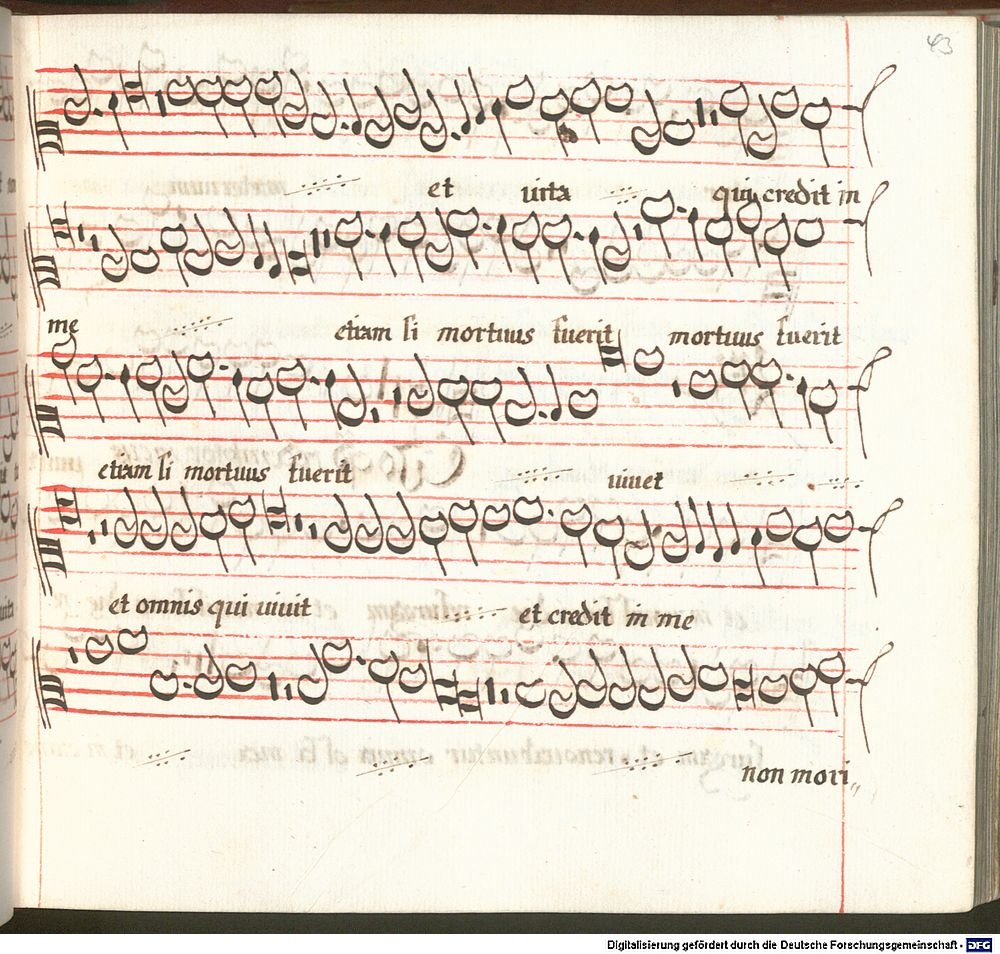 43
et uita qui credit in
me etiam si mortuus fuerit mortuus fuerit
etiam si mortuus fuerit uiuet
et omnis qui uiuit et credit in me
non mori„
Digitalisierung gefördert durch die Deutsche Forschungsgemeinschaft - DFG